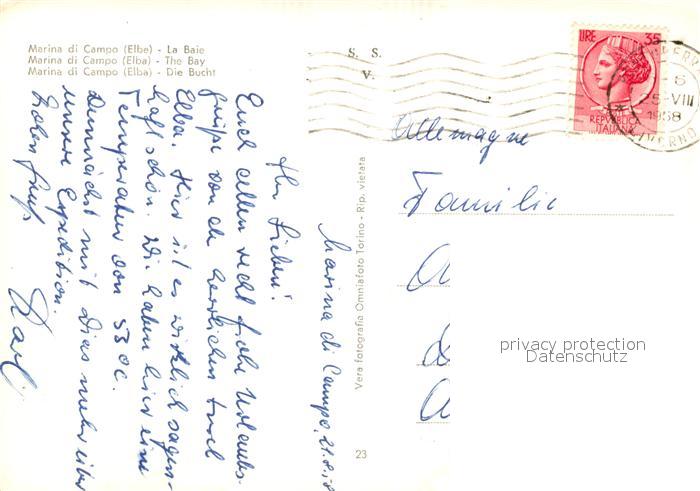 Marina di Campo (Elbe) - La Baie
Marina di Campo (Elba) - The Bay
Marina di Campo (Elba) - Die Bucht
S. S.
V.
LIRE 35
REPVBBLICA
ITALIANA
25-VIII
1958
LIVORNO
Allemagne
Familie
privacy protection
Datenschutz
Vera fotografia Omniafoto Torino - Rip. vietata
23
Marina di Campo, 21.8.58
Ihr Lieben!
Euch allen recht frohe Urlaubs-
grüße von der herrlichen Insel
Elba. Hier ist es wirklich sagen-
haft schön. Wir haben hier eine
Temperatur von 53°C.
Demnächst mit Dias mehr über
unsere Expedition.
Karl